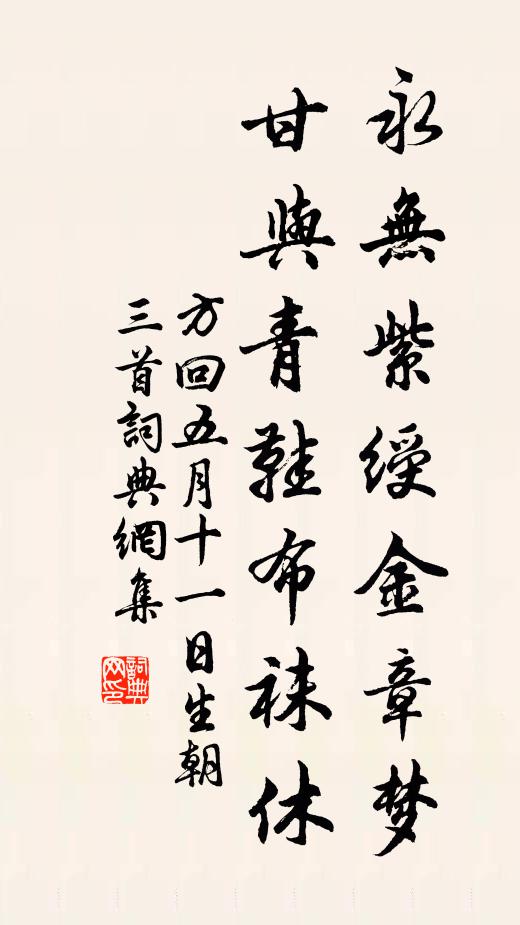 永無紫綬金章梦
甘與青鞋布袜休
方回五月十一日生朝
三首詞典網集
詞典网印